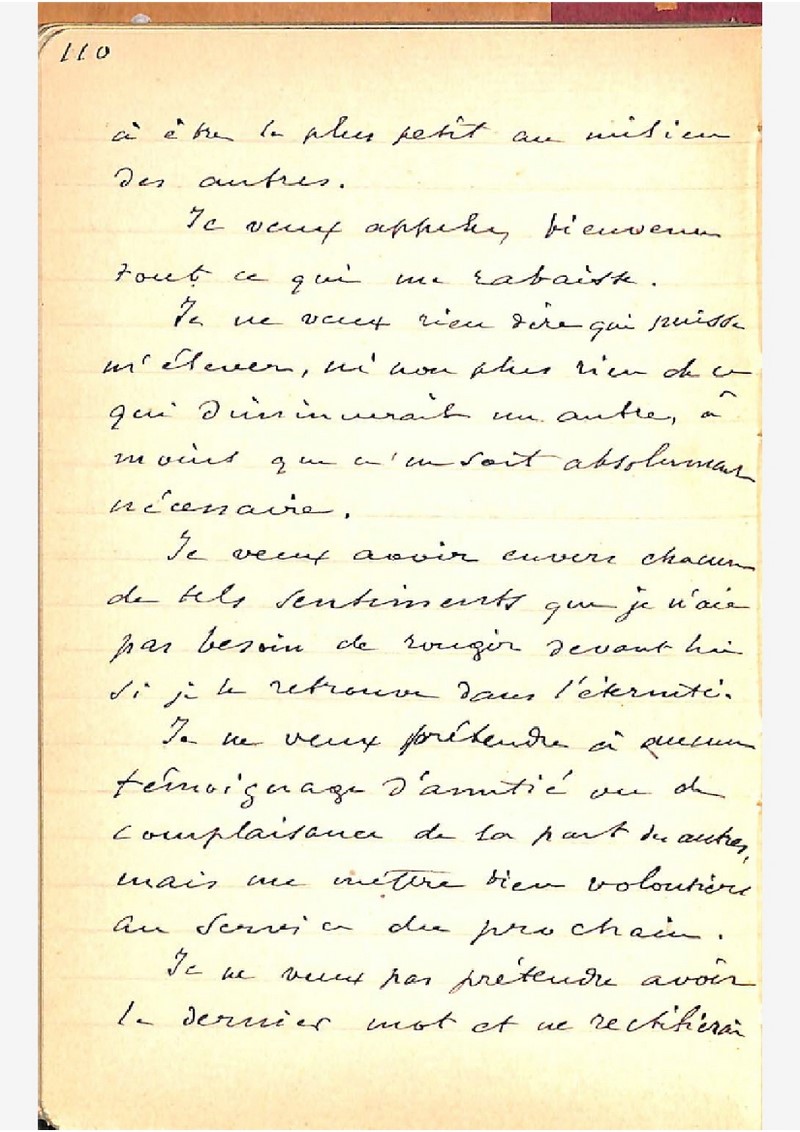 110
à être le plus petit au milieu
des autres.
Je veux appeler bienvenu
tout ce qui me rabaisse.
Je ne veux rien dire qui puisse
m'élever, ni non plus rien de ce
qui diminuerait un autre, à
moins que ce n'en soit absolument
nécessaire.
Je veux avoir envers chacun
de tels sentiments que je n'aie
pas besoin de rougir devant lui
si je le retrouve dans l'éternité.
Je ne veux prétendre à aucun
témoignage d'amitié ou de
complaisance de la part des autres,
mais me mettre bien volontiers
au service du prochain.
Je ne veux pas prétendre avoir
le dernier mot et ne rectifierai